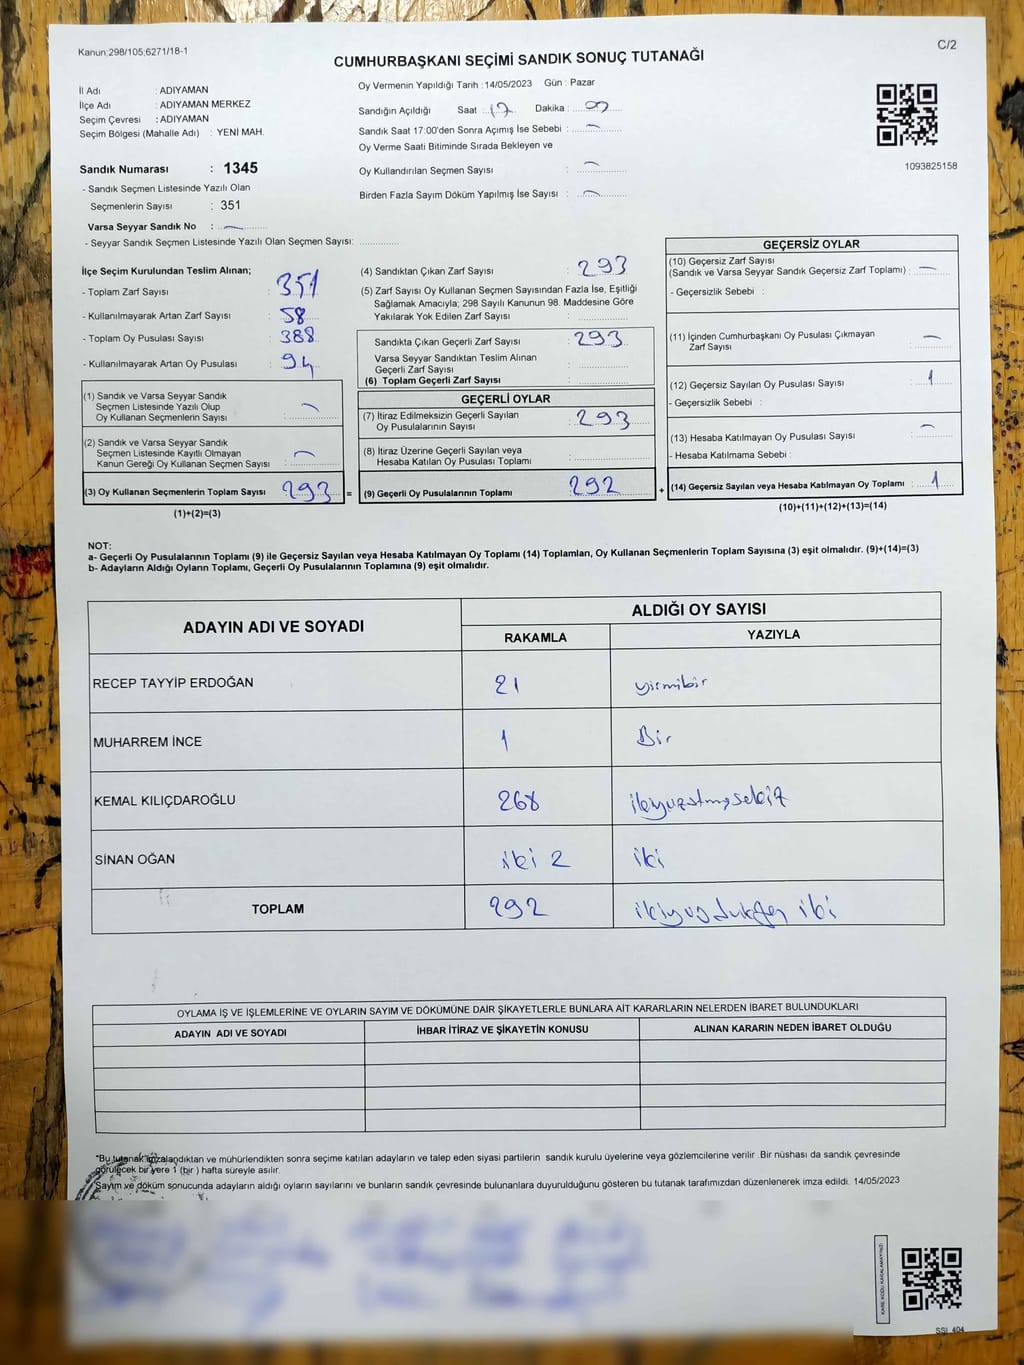 Kanun:298/105,6271/18-1
C/2
CUMHURBAŞKANI SEÇİMİ SANDIK SONUÇ TUTANAĞI
İl Adı : ADIYAMAN
İlçe Adı : ADIYAMAN MERKEZ
Seçim Çevresi : ADIYAMAN
Seçim Bölgesi (Mahalle Adı) : YENİ MAH.
Sandık Numarası : 1345
- Sandık Seçmen Listesinde Yazılı Olan
Seçmenlerin Sayısı : 351
Varsa Seyyar Sandık No : —
- Seyyar Sandık Seçmen Listesinde Yazılı Olan Seçmen Sayısı:
Oy Vermenin Yapıldığı Tarih :14/05/2023 Gün : Pazar
Sandığın Açıldığı Saat : 17 Dakika : 00
Sandık Saat 17:00'den Sonra Açımış İse Sebebi : —
Oy Verme Saati Bitiminde Sırada Bekleyen ve
Oy Kullandırılan Seçmen Sayısı : —
Birden Fazla Sayım Döküm Yapılmış İse Sayısı : —
1093825158
İlçe Seçim Kurulundan Teslim Alınan;
- Toplam Zarf Sayısı : 351
- Kullanılmayarak Artan Zarf Sayısı : 58
- Toplam Oy Pusulası Sayısı : 388
- Kullanılmayarak Artan Oy Pusulası : 94
(1) Sandık ve Varsa Seyyar Sandık
Seçmen Listesinde Yazılı Olup
Oy Kullanan Seçmenlerin Sayısı : —
(2) Sandık ve Varsa Seyyar Sandık
Seçmen Listesinde Kayıtlı Olmayan
Kanun Gereği Oy Kullanan Seçmen Sayısı : —
(3) Oy Kullanan Seçmenlerin Toplam Sayısı 293 =
(1)+(2)=(3)
(4) Sandıktan Çıkan Zarf Sayısı : 293
(5) Zarf Sayısı Oy Kullanan Seçmen Sayısından Fazla İse, Eşitliği
Sağlamak Amacıyla; 298 Sayılı Kanunun 98. Maddesine Göre
Yakılarak Yok Edilen Zarf Sayısı :
Sandıkta Çıkan Geçerli Zarf Sayısı : 293
Varsa Seyyar Sandıktan Teslim Alınan
Geçerli Zarf Sayısı :
(6) Toplam Geçerli Zarf Sayısı :
GEÇERLİ OYLAR
(7) İtiraz Edilmeksizin Geçerli Sayılan
Oy Pusulalarının Sayısı : 293
(8) İtiraz Üzerine Geçerli Sayılan veya
Hesaba Katılan Oy Pusulası Toplamı :
(9) Geçerli Oy Pusulalarının Toplamı : 292 +
GEÇERSİZ OYLAR
(10) Geçersiz Zarf Sayısı
(Sandık ve Varsa Seyyar Sandık Geçersiz Zarf Toplamı) : —
- Geçersizlik Sebebi :
(11) İçinden Cumhurbaşkanı Oy Pusulası Çıkmayan
Zarf Sayısı : —
(12) Geçersiz Sayılan Oy Pusulası Sayısı : 1
- Geçersizlik Sebebi :
(13) Hesaba Katılmayan Oy Pusulası Sayısı : —
- Hesaba Katılmama Sebebi :
(14) Geçersiz Sayılan veya Hesaba Katılmayan Oy Toplamı : 1
(10)+(11)+(12)+(13)=(14)
NOT:
a- Geçerli Oy Pusulalarının Toplamı (9) ile Geçersiz Sayılan veya Hesaba Katılmayan Oy Toplamı (14) Toplamları, Oy Kullanan Seçmenlerin Toplam Sayısına (3) eşit olmalıdır. (9)+(14)=(3)
b- Adayların Aldığı Oyların Toplamı, Geçerli Oy Pusulalarının Toplamına (9) eşit olmalıdır.
ADAYIN ADI VE SOYADI
ALDIĞI OY SAYISI
RAKAMLA YAZIYLA
RECEP TAYYİP ERDOĞAN 21 yirmibir
MUHARREM İNCE 1 Bir
KEMAL KILIÇDAROĞLU 268 ikiyuzatmışsekiz
SİNAN OĞAN iki 2 iki
TOPLAM 292 iki
OYLAMA İŞ VE İŞLEMLERİNE VE OYLARIN SAYIM VE DÖKÜMÜNE DAİR ŞİKAYETLERLE BUNLARA AİT KARARLARIN NELERDEN İBARET BULUNDUKLARI
ADAYIN ADI VE SOYADI İHBAR İTİRAZ VE ŞİKAYETİN KONUSU ALINAN KARARIN NEDEN İBARET OLDUĞU
*Bu tutanak imzalandıktan ve mühürlendikten sonra seçime katılan adayların ve talep eden siyasi partilerin sandık kurulu üyelerine veya gözlemcilerine verilir .Bir nüshası da sandık çevresinde
görülecek bir yere 1 (bir ) hafta süreyle asılır.
Sayım ve döküm sonucunda adayların aldığı oyların sayılarını ve bunların sandık çevresinde bulunanlara duyurulduğunu gösteren bu tutanak tarafımızdan düzenlenerek imza edildi. 14/05/2023
KARE KODU KARALAMAYINIZ!
SSI_404